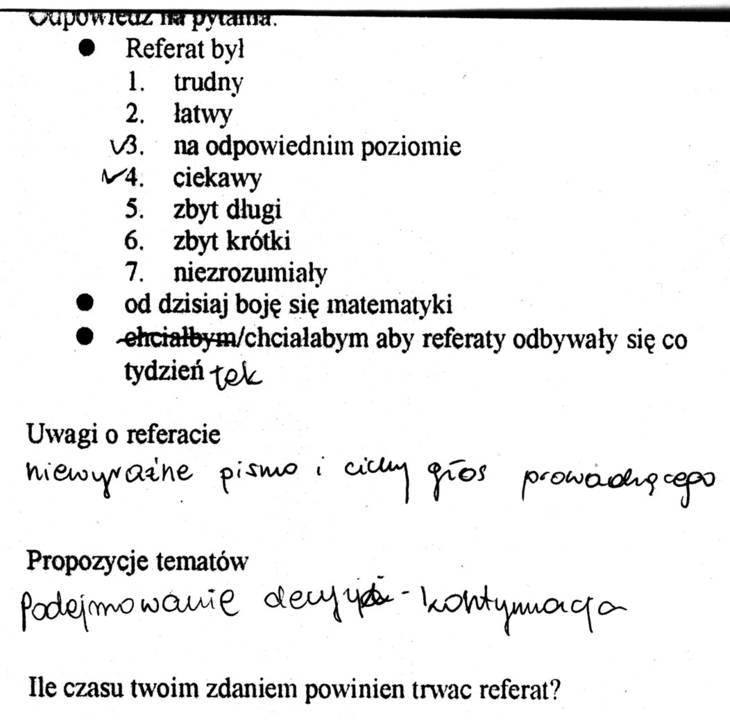 Odpowiedz na pytania:
● Referat był
1. trudny
2. łatwy
✓3. na odpowiednim poziomie
✓4. ciekawy
5. zbyt długi
6. zbyt krótki
7. niezrozumiały
● od dzisiaj boję się matematyki
● chciałbym/chciałabym aby referaty odbywały się co
tydzień tak
Uwagi o referacie
niewyraźne pismo i cichy głos prowadzącego
Propozycje tematów
Podejmowanie decyzji - kontynuacja
Ile czasu twoim zdaniem powinien trwac referat?